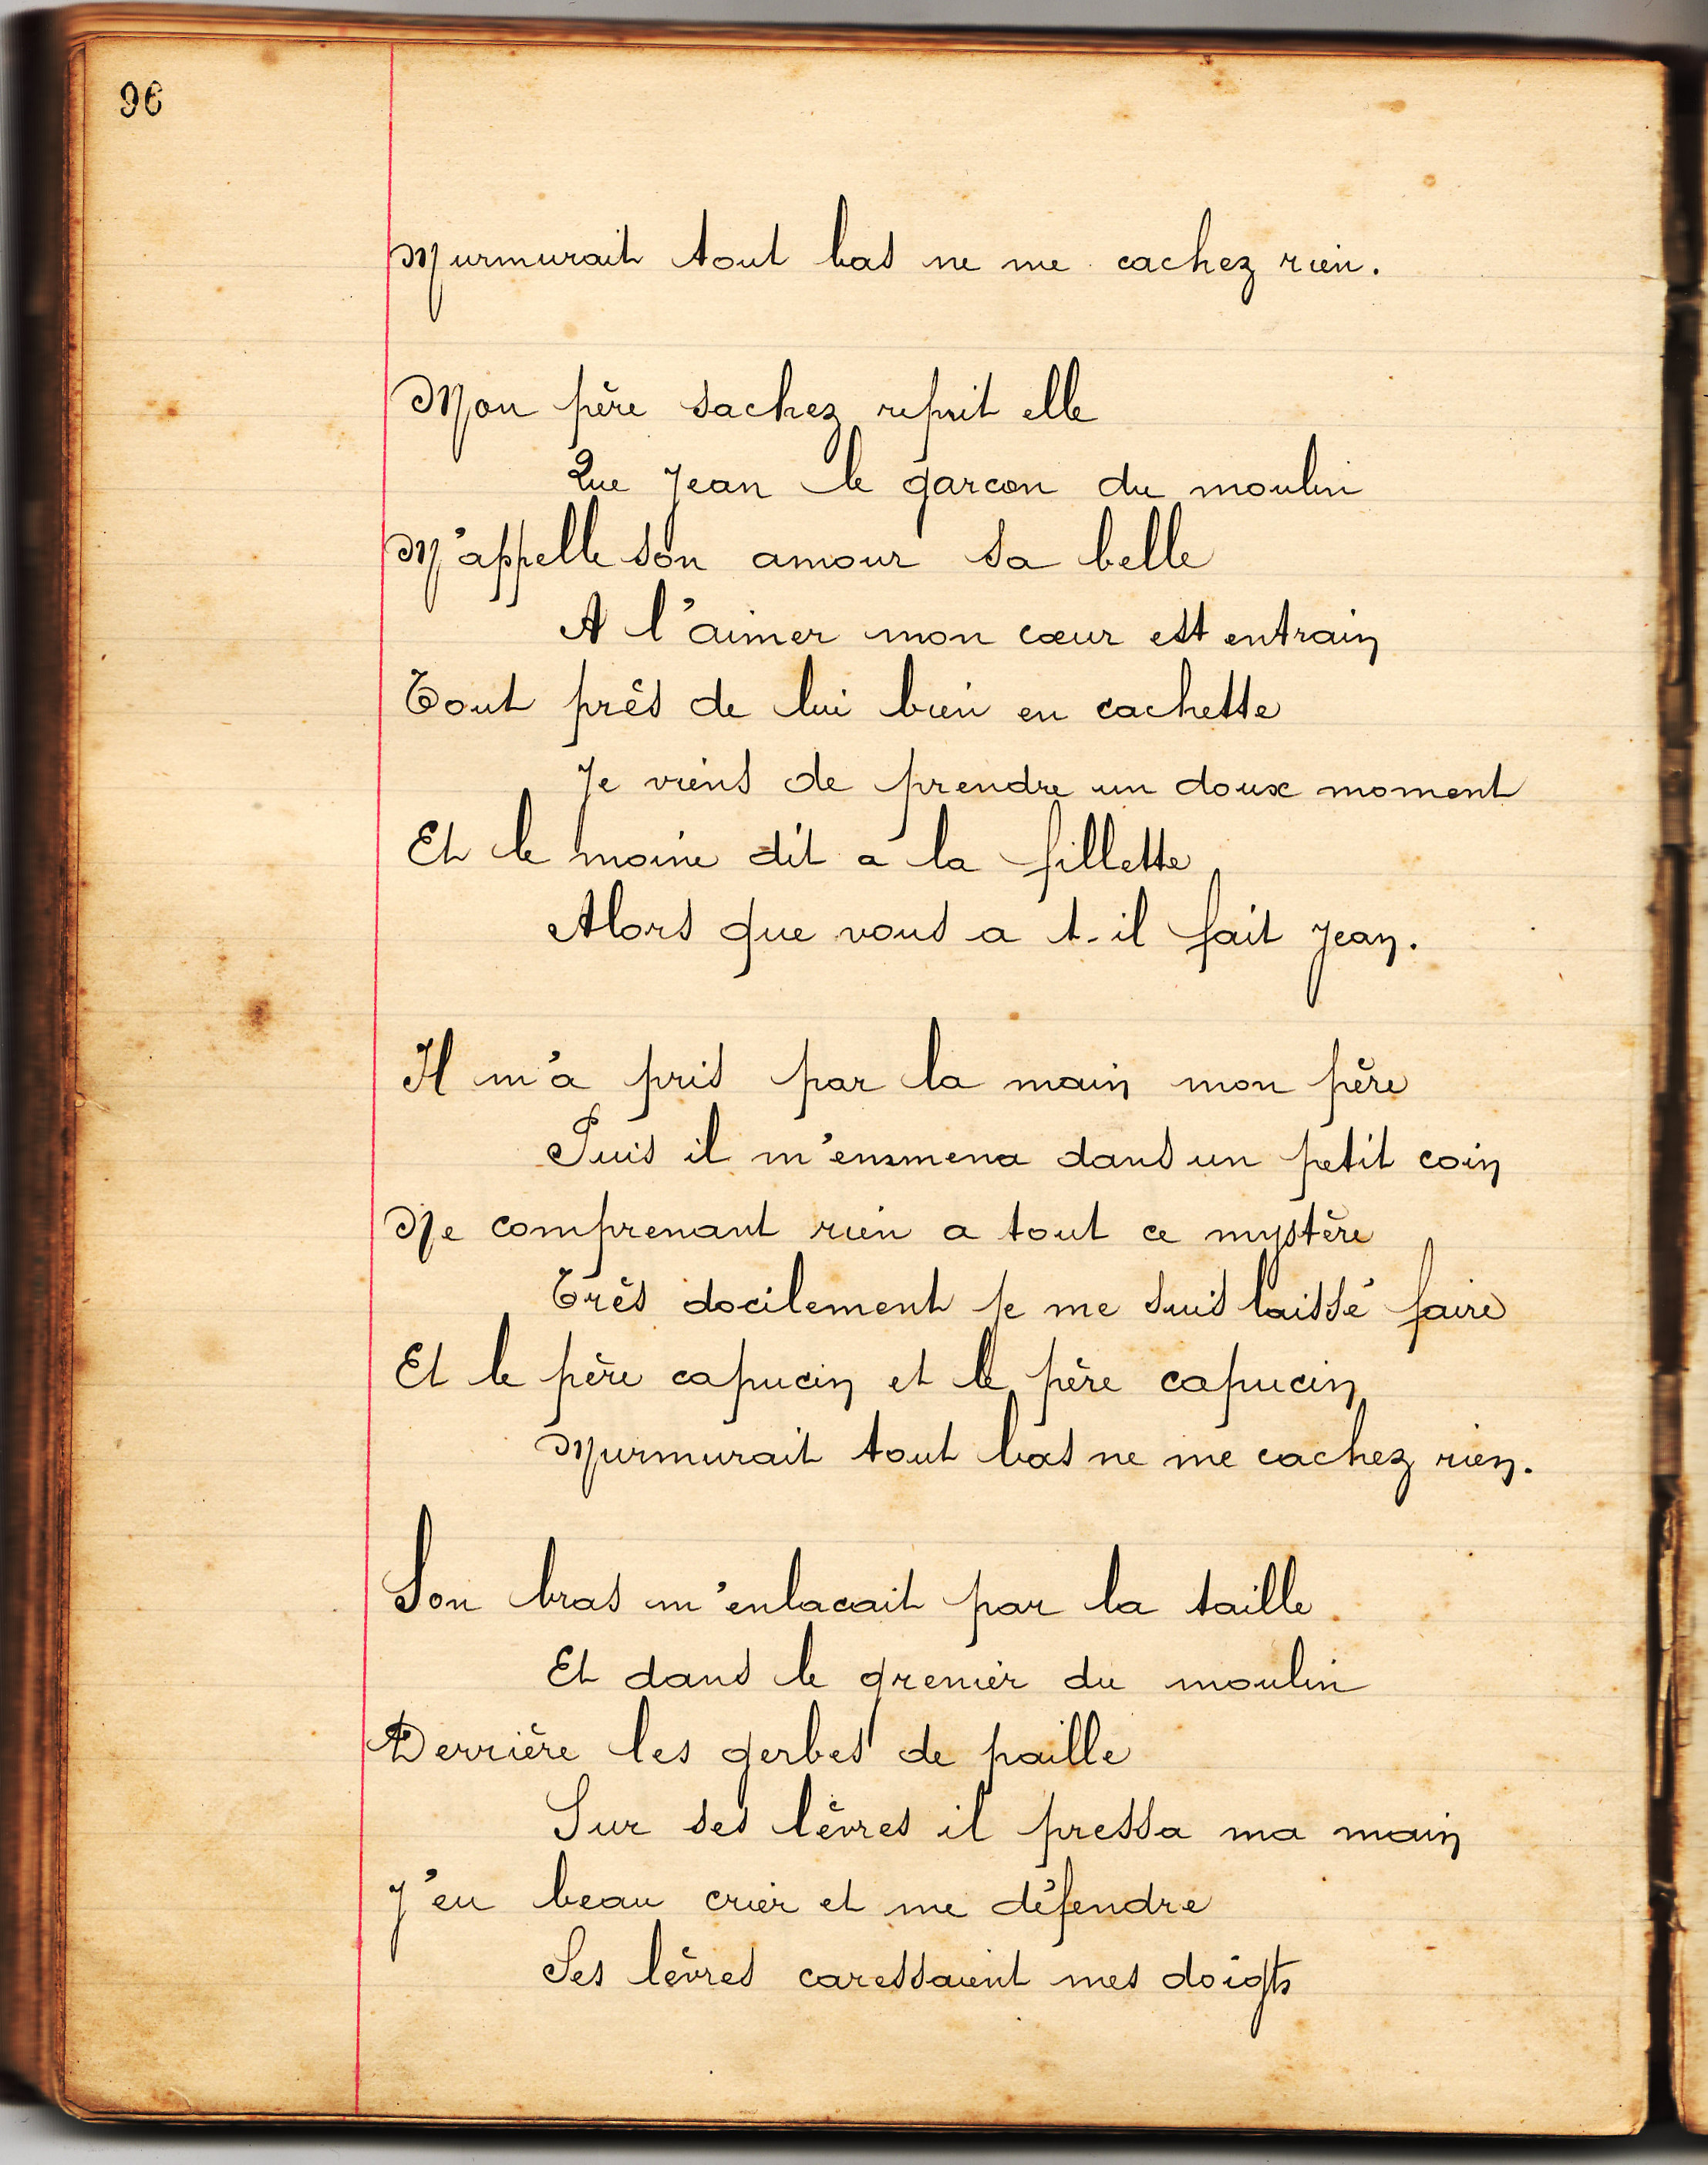 96
Murmurait tout bas ne me cachez rien.
Mon père sachez reprit elle
Que Jean le garcon du moulin
M'appelle son amour sa belle
A l'aimer mon cœur est entrain
Tout près de lui bien en cachette
Je viens de prendre un doux moment
Et le moine dit a la fillette
Alors que vous a t-il fait Jean.
Il m'a pris par la main mon père
Puis il m'enmena dans un petit coin
Ne comprenant rien a tout ce mystère
Très docilement je me suis laissé faire
Et le père capucin et le père capucin
Murmurait tout bas ne me cachez rien.
Son bras m'enlacait par la taille
Et dans le grenier du moulin
Derrière les gerbes de paille
Sur ses lèvres il pressa ma main
J'eu beau crier et me défendre
Ses lèvres caressaient mes doigts